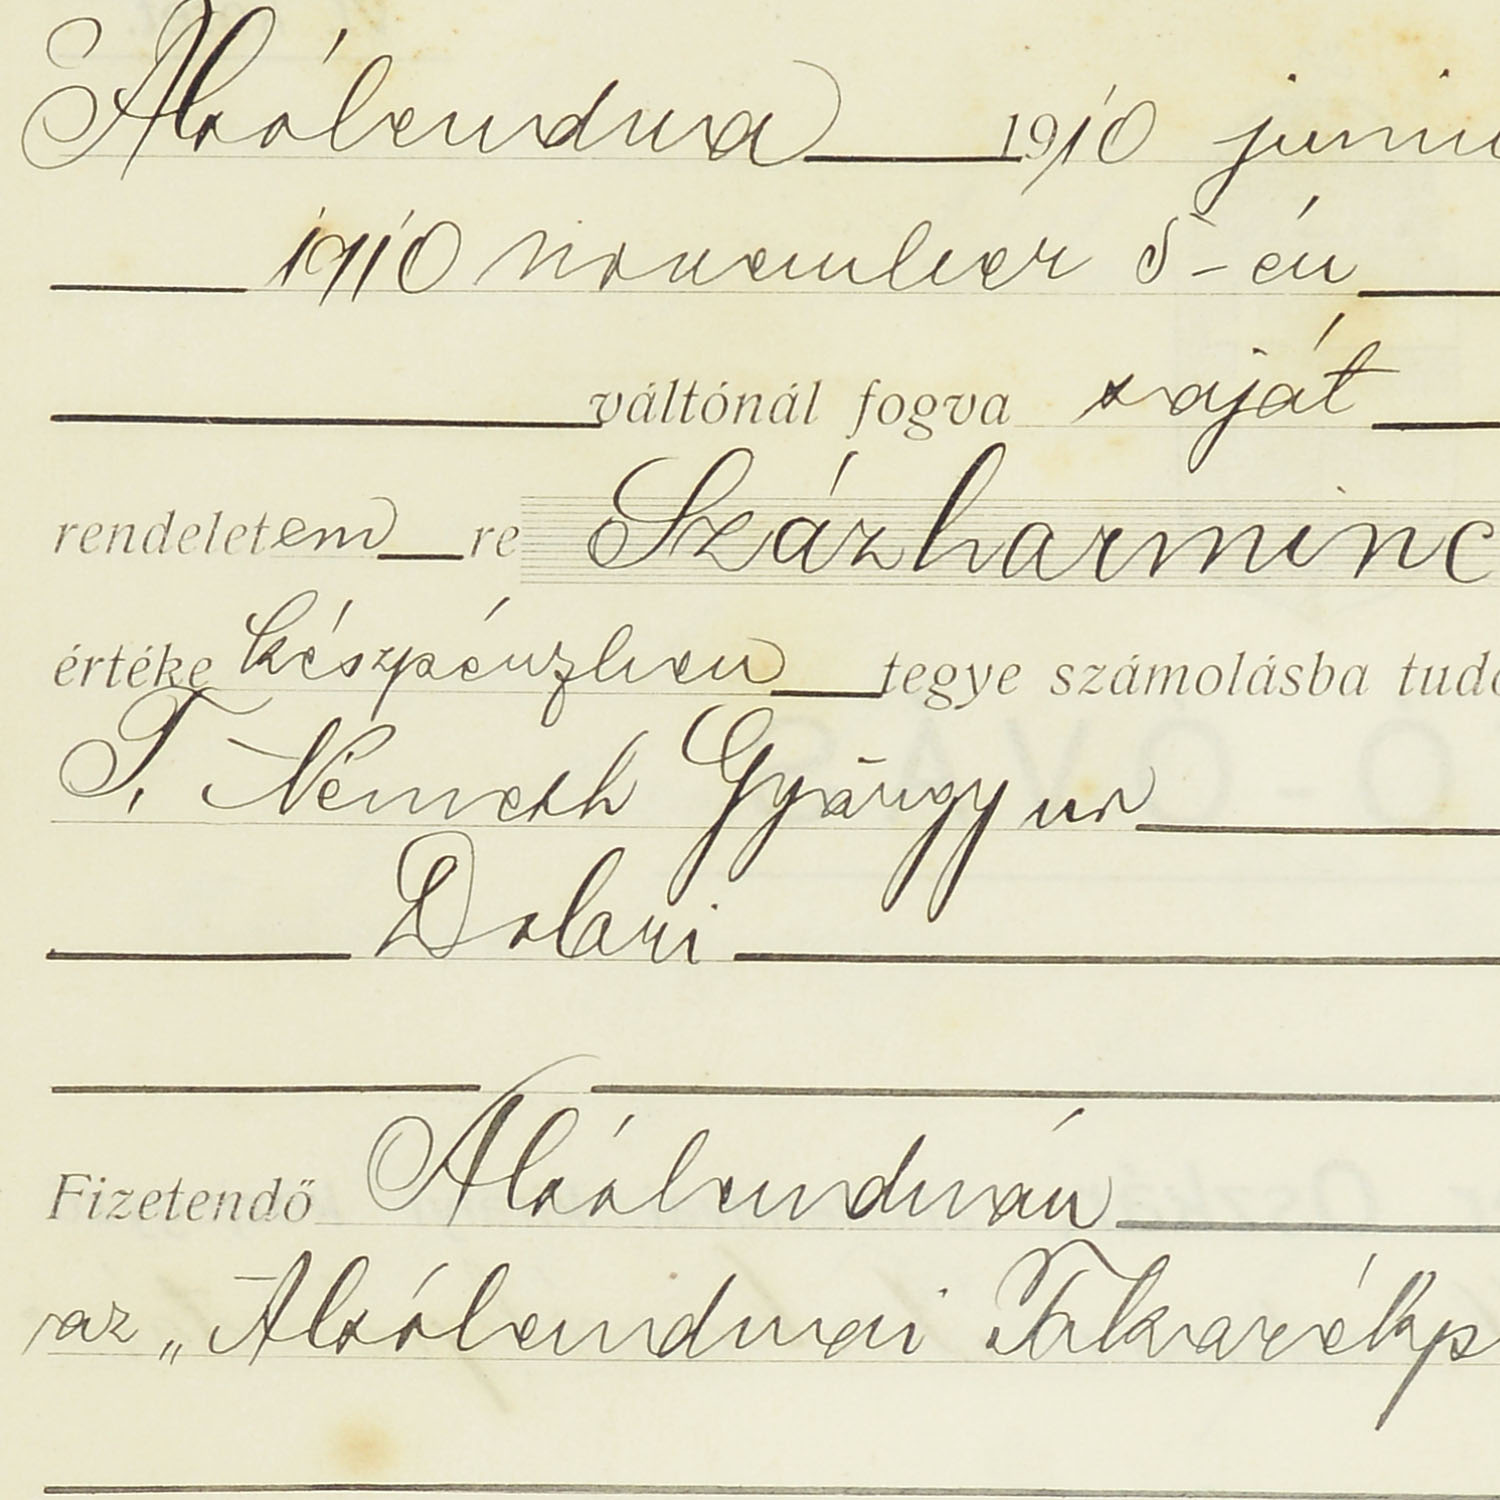 Alsólendva 1910 juni
1910 november 5-én
váltónál fogva saját
rendeletem re Százharminc
értéke készpénzben tegye számolásba tudó
T. Németh György ur
Dolari
Fizetendő Alsólendván
az „Alsólendvai Takarékp